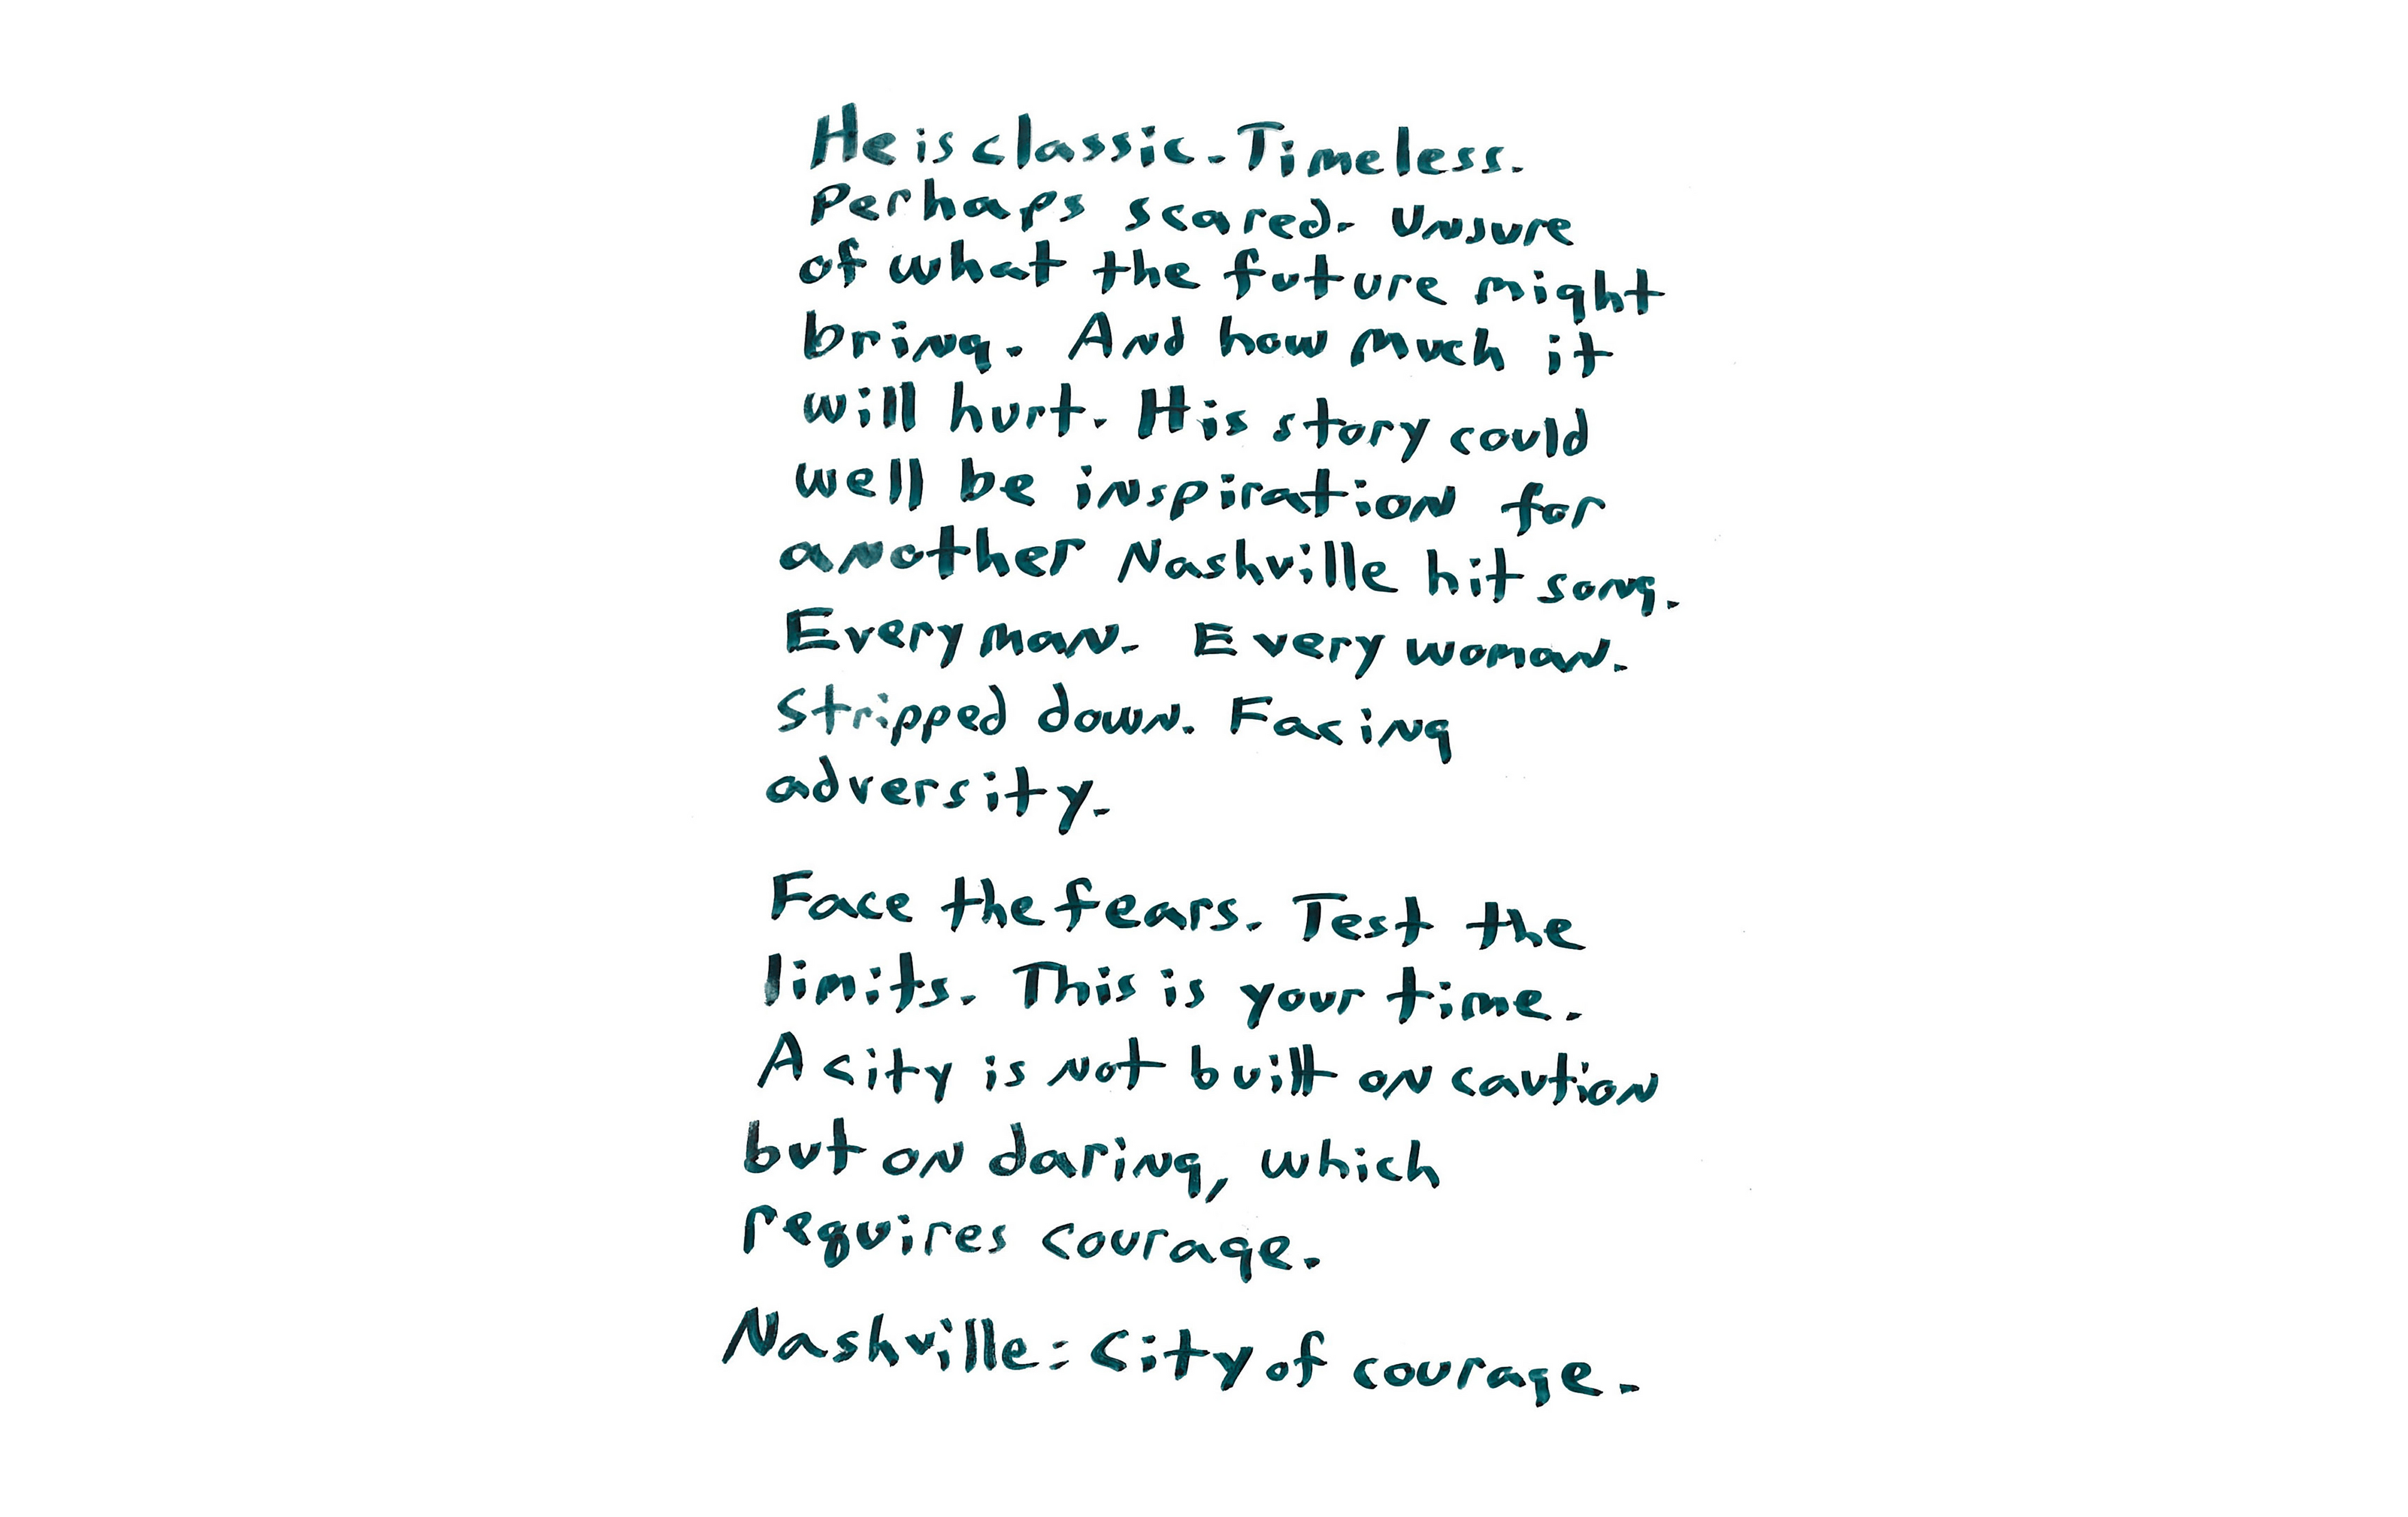 He is classic. Timeless.
Perhaps scared. Unsure
of what the future might
bring. And how much it
will hurt. His story could
well be inspiration for
another Nashville hit song.
Every man. Every woman.
Stripped down. Facing
adversity.
Face the fears. Test the
limits. This is your time.
A city is not built on caution
but on daring, which
requires courage.
Nashville: City of courage.